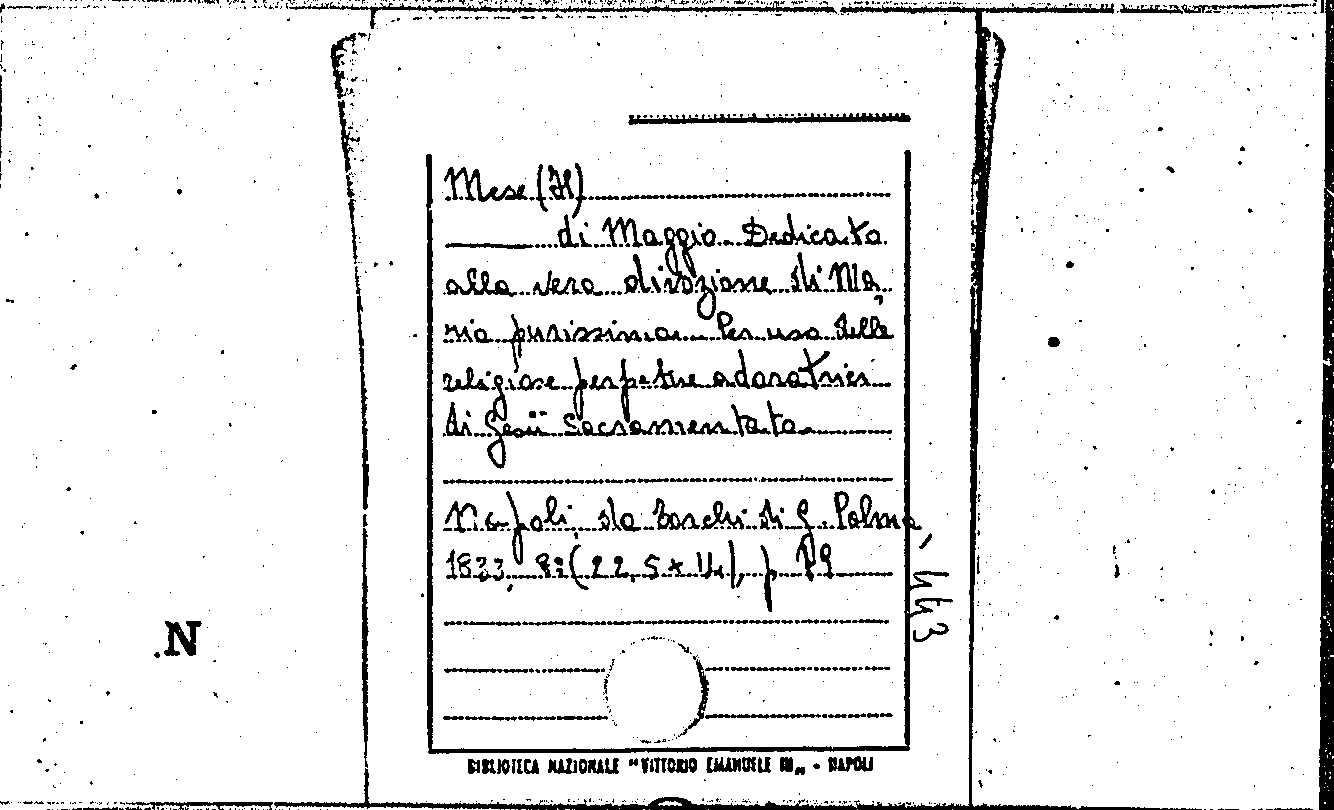 Mese (Il)
di Maggio. Dedicato
alla vera divozione di Ma,
ria purissima. Per uso delle
religiose perpetue adoratrici
di Gesù Sacramentato.
Napoli, da Torchi di G. Palma,
1833, 8º (22,5 x 14), p. 79
443
.N
BIBLIOTECA NAZIONALE "VITTORIO EMANUELE III„ - NAPOLI